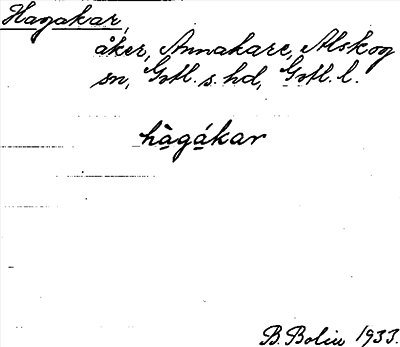 Hagakar,
åker, Annakare, Alskog
sn, Gotl. s. hd, Gotl. l.
hàgákar
B. Bolin 1933.